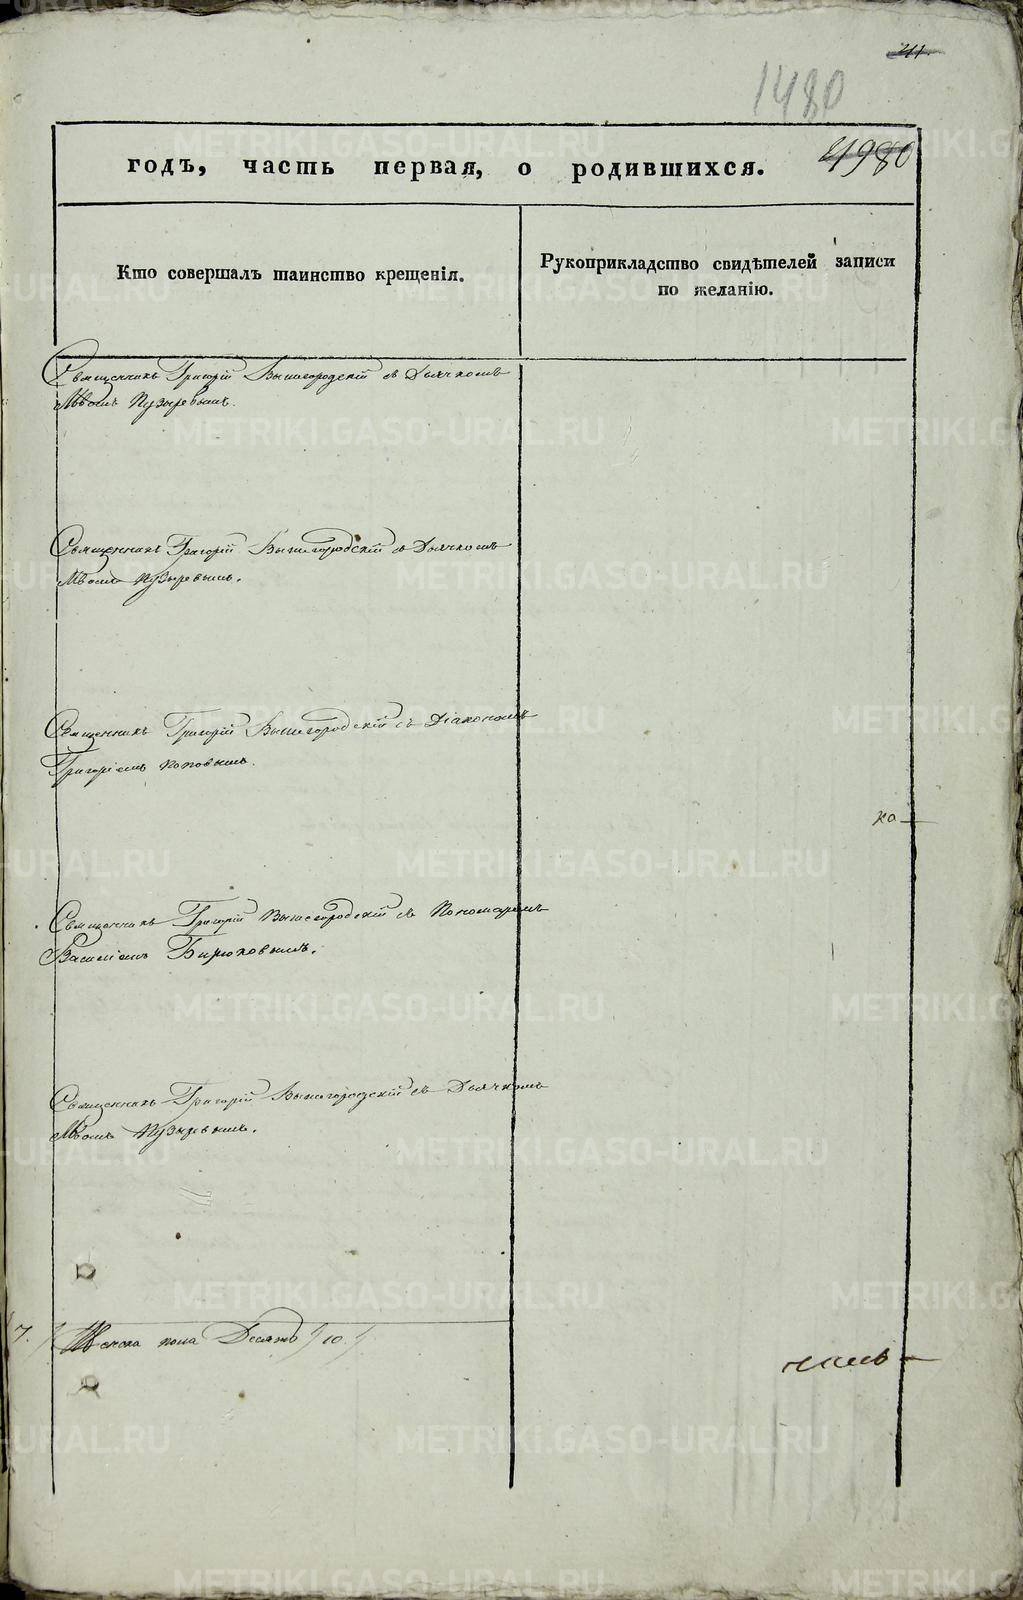 41.
1480
годъ, часть первая, о родившихся. 4980
Кто совершалъ таинство крещенія.
Рукоприкладство свидѣтелей записи
по желанію.
Священникъ Григорій Вышегородскій съ Дьячкомъ
Пузыревымъ.
Священникъ Григорій Вышегородскій съ Дьячкомъ
Пузыревымъ.
Священникъ Григорій Вышегородскій съ Діакономъ
Григоріемъ Поповымъ.
ка
Священникъ Григорій Вышегородскій съ Пономаремъ
Василіемъ Бирюковымъ.
Священникъ Григорій Вышегородскій съ Дьячкомъ
Пузыревымъ.
7. Женска пола Десять /10./
METRIKI.GASO-URAL.RU